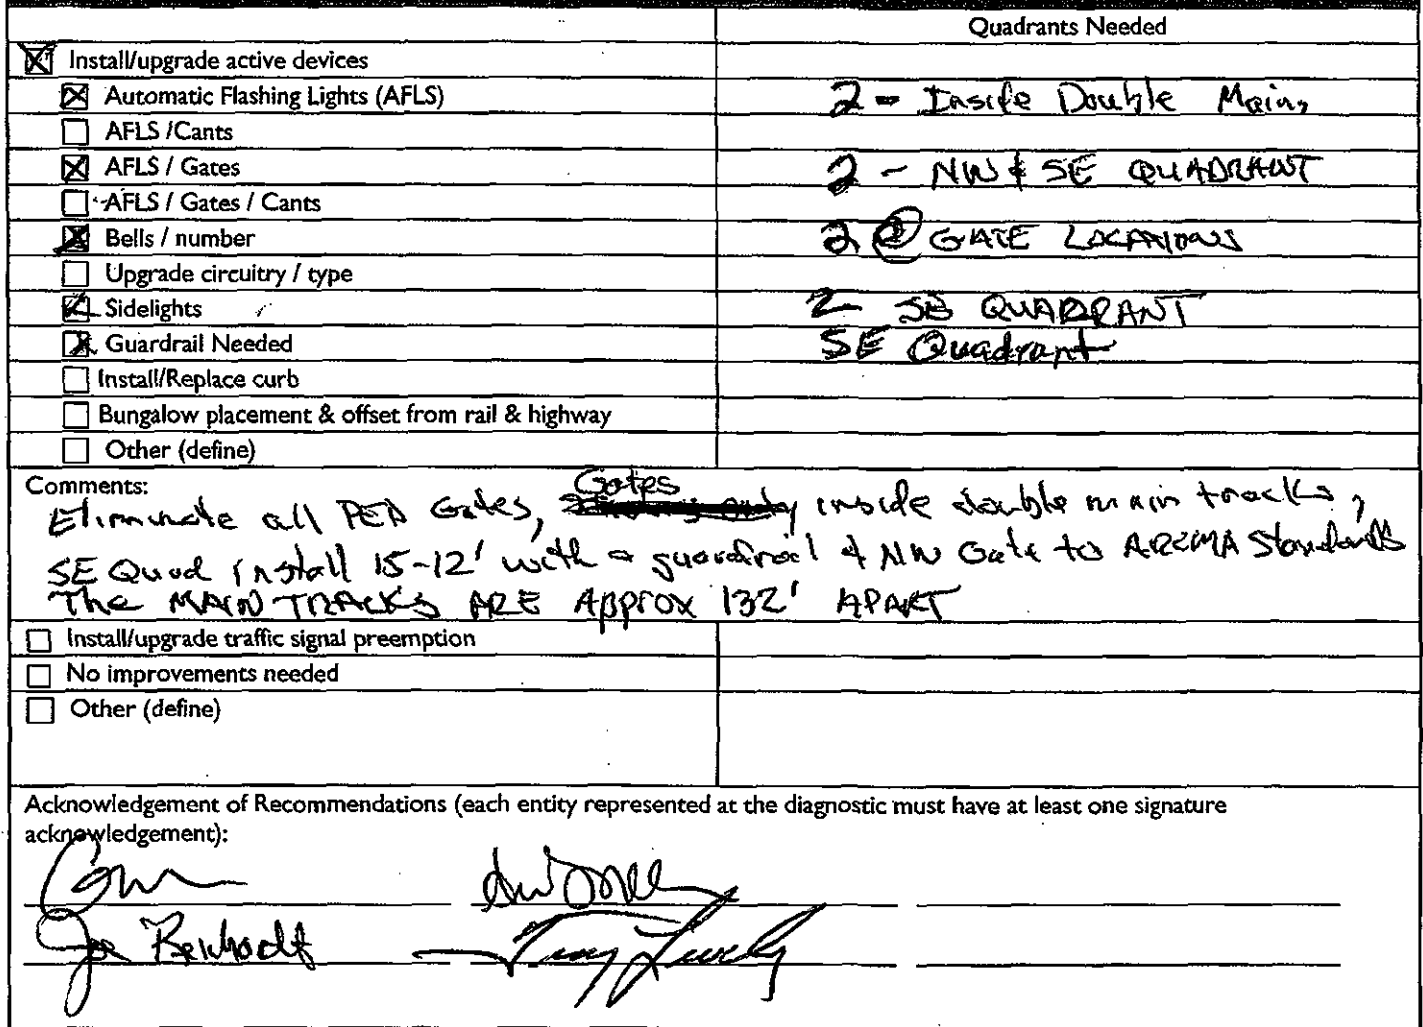 Quadrants Needed
Install/upgrade active devices
Automatic Flashing Lights (AFLS) 2 - Inside Double Main,
AFLS /Cants
AFLS / Gates 2 - NW & SE QUADRANT
AFLS / Gates / Cants
Bells / number 2 @ GATE LOCATIONS
Upgrade circuitry / type
Sidelights 2- SE QUADRANT
Guardrail Needed SE Quadrant
Install/Replace curb
Bungalow placement & offset from rail & highway
Other (define)
Comments:
Gates
Eliminate all PED Gates, inside double main tracks,
SE Quad install 15-12' with a guardrail & NW Gate to AREMA Standards
The MAIN TRACKS ARE Approx 132' APART
Install/upgrade traffic signal preemption
No improvements needed
Other (define)
Acknowledgement of Recommendations (each entity represented at the diagnostic must have at least one signature
acknowledgement):
Joe Reinhardt